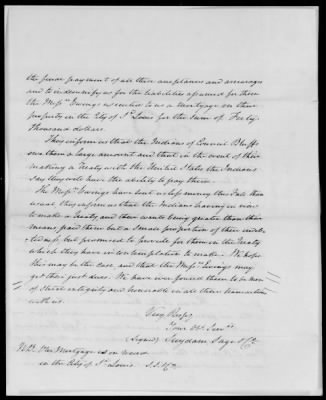 the final payment of all their acceptances and overages
and to indemnify us for the liabilities assumed for them
the Messrs Ewings executed to us a Mortgage on their
property in the City of St Louis for the Sum of Forty
Thousand dollars.
They inform us that the Indians of Council Bluffs
owe them a large amount and that in the event of their
making a Treaty with the United States the Indians
say they will have the ability to pay them.
The Messrs Ewings have sent us less money this Fall than
usual they inform us that the Indians having in view
to make a Treaty and their wants being greater than their
means paid them but a Small proportion of their indeb-
tedness but promised to provide for them in the Treaty
which they have in contemplation to make. We hope
this may be the case, and that the Messrs Ewings may
get their just dues. We have ever found them to be men
of strict integrity and honorable in all their transactions
with us.
Very Respy
Your Obt Servts
(Signed) Suydam Sage & Co
N.B. The Mortgage is on record
in the City of St Louis. S.S. & Co.